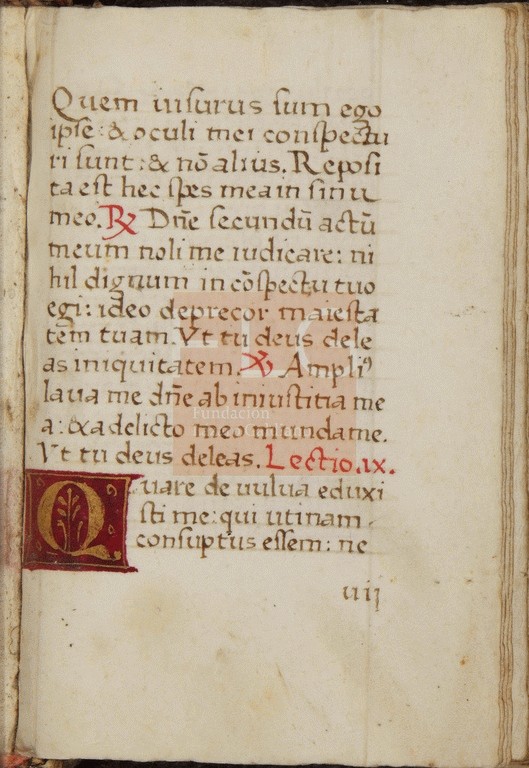 Quem uisurus sum ego
ipse: & oculi mei conspectu
ri sunt: & nō alius. Reposi
ta est hec spes mea in sinu
meo. ℟ Dn̄e secundū actū
meum noli me iudicare: ni
hil dignum in cōspectu tuo
egi: ideo deprecor maiesta
tem tuam. Vt tu deus dele
as iniquitatem. ℣ Ampliꝰ
laua me dn̄e ab iniustitia me
a: & a delicto meo munda me.
Vt tu deus deleas. Lectio .ix.
Quare de uulua eduxi
sti me: qui utinam
consuptus essem: ne
uiij
Fundación